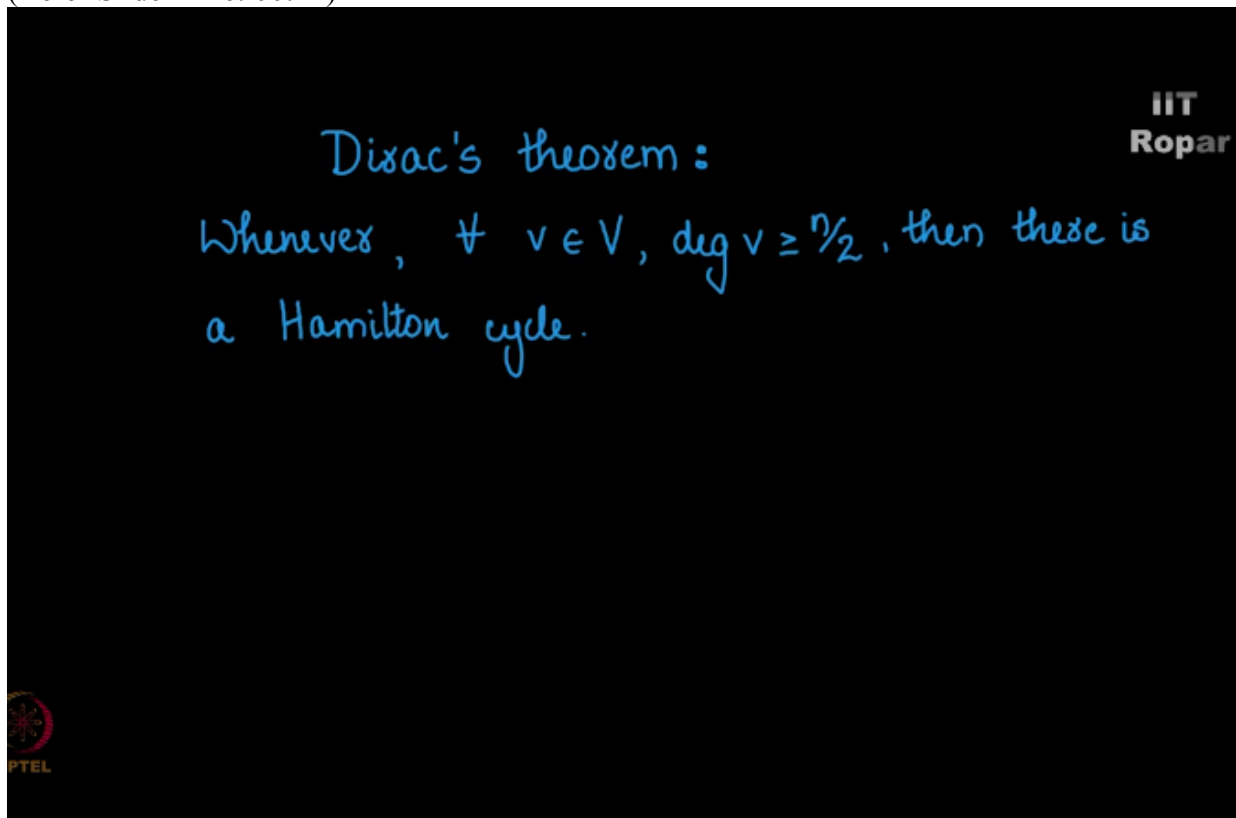 IIT
Ropar
Dirac's theorem :
Whenever, ∀ v ∈ V, deg v ≥ n/2, then there is
a Hamilton cycle.
PTEL